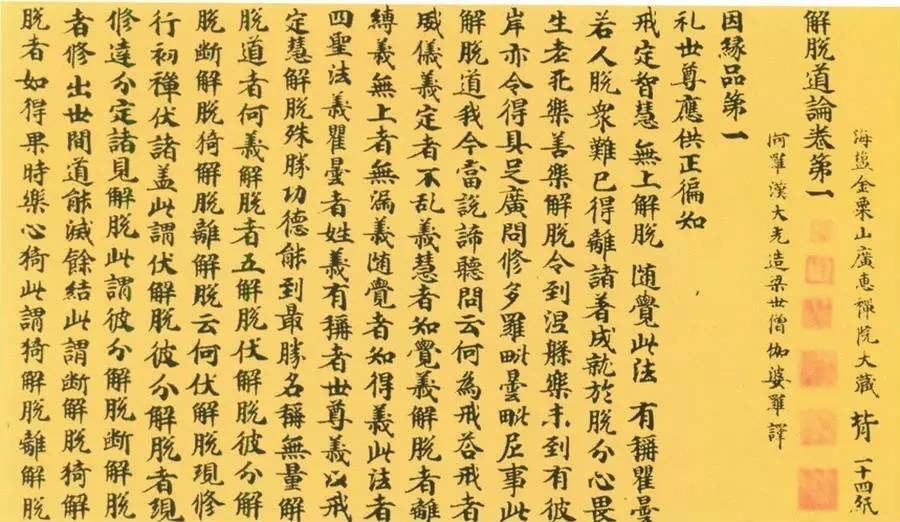 海塩金粟山廣惠禪院大藏 一十四紙
解脫道論卷第一
阿羅漢大光造梁世僧伽婆羅譯
因緣品第一
礼世尊應供正徧知
戒定智慧 無上解脫 随覺此法 有稱瞿曇
若人脫衆難已得離諸著成就於脫分心畏
生老死樂善樂解脫令到涅槃樂未到有彼
岸亦令得具足廣問修多羅毗曇毗尼事此
解脫道我今當說諦聽問云何為戒荅戒者
威儀義定者不乱義慧者知覺義解脫者離
縛義無上者無漏義随覺者知得義此法者
四聖法義瞿曇者姓義有稱者世尊義以戒
定慧解脫殊勝功德能到最勝名稱無量解
脫道者何義解脫者五解脫伏解脫彼分解
脫断解脫猗解脫離解脫云何伏解脫現修
行初禪伏諸盖此謂伏解脫彼分解脫者現
修達分定諸見解脫此謂彼分解脫断解脫
者修出世間道能滅餘結此謂断解脫猗解
脫者如得果時樂心猗此謂猗解脫離解脫